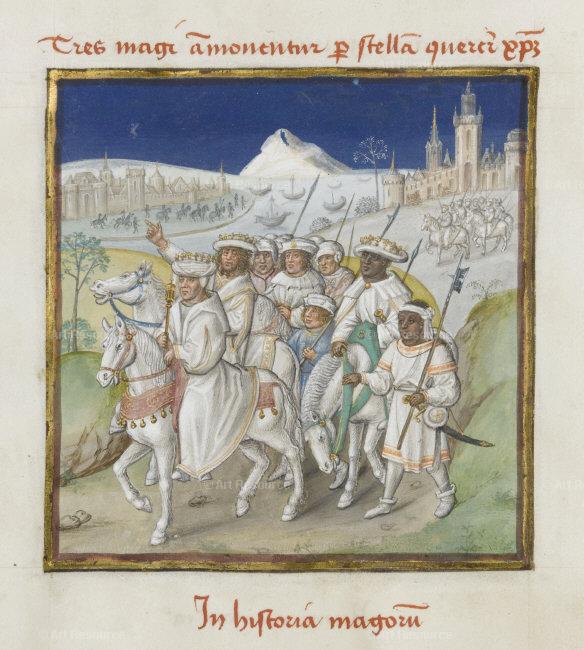 Tres magi āmonentur ꝑ stellā querer̄ xp̄m
In historia magorū
© Art Resource